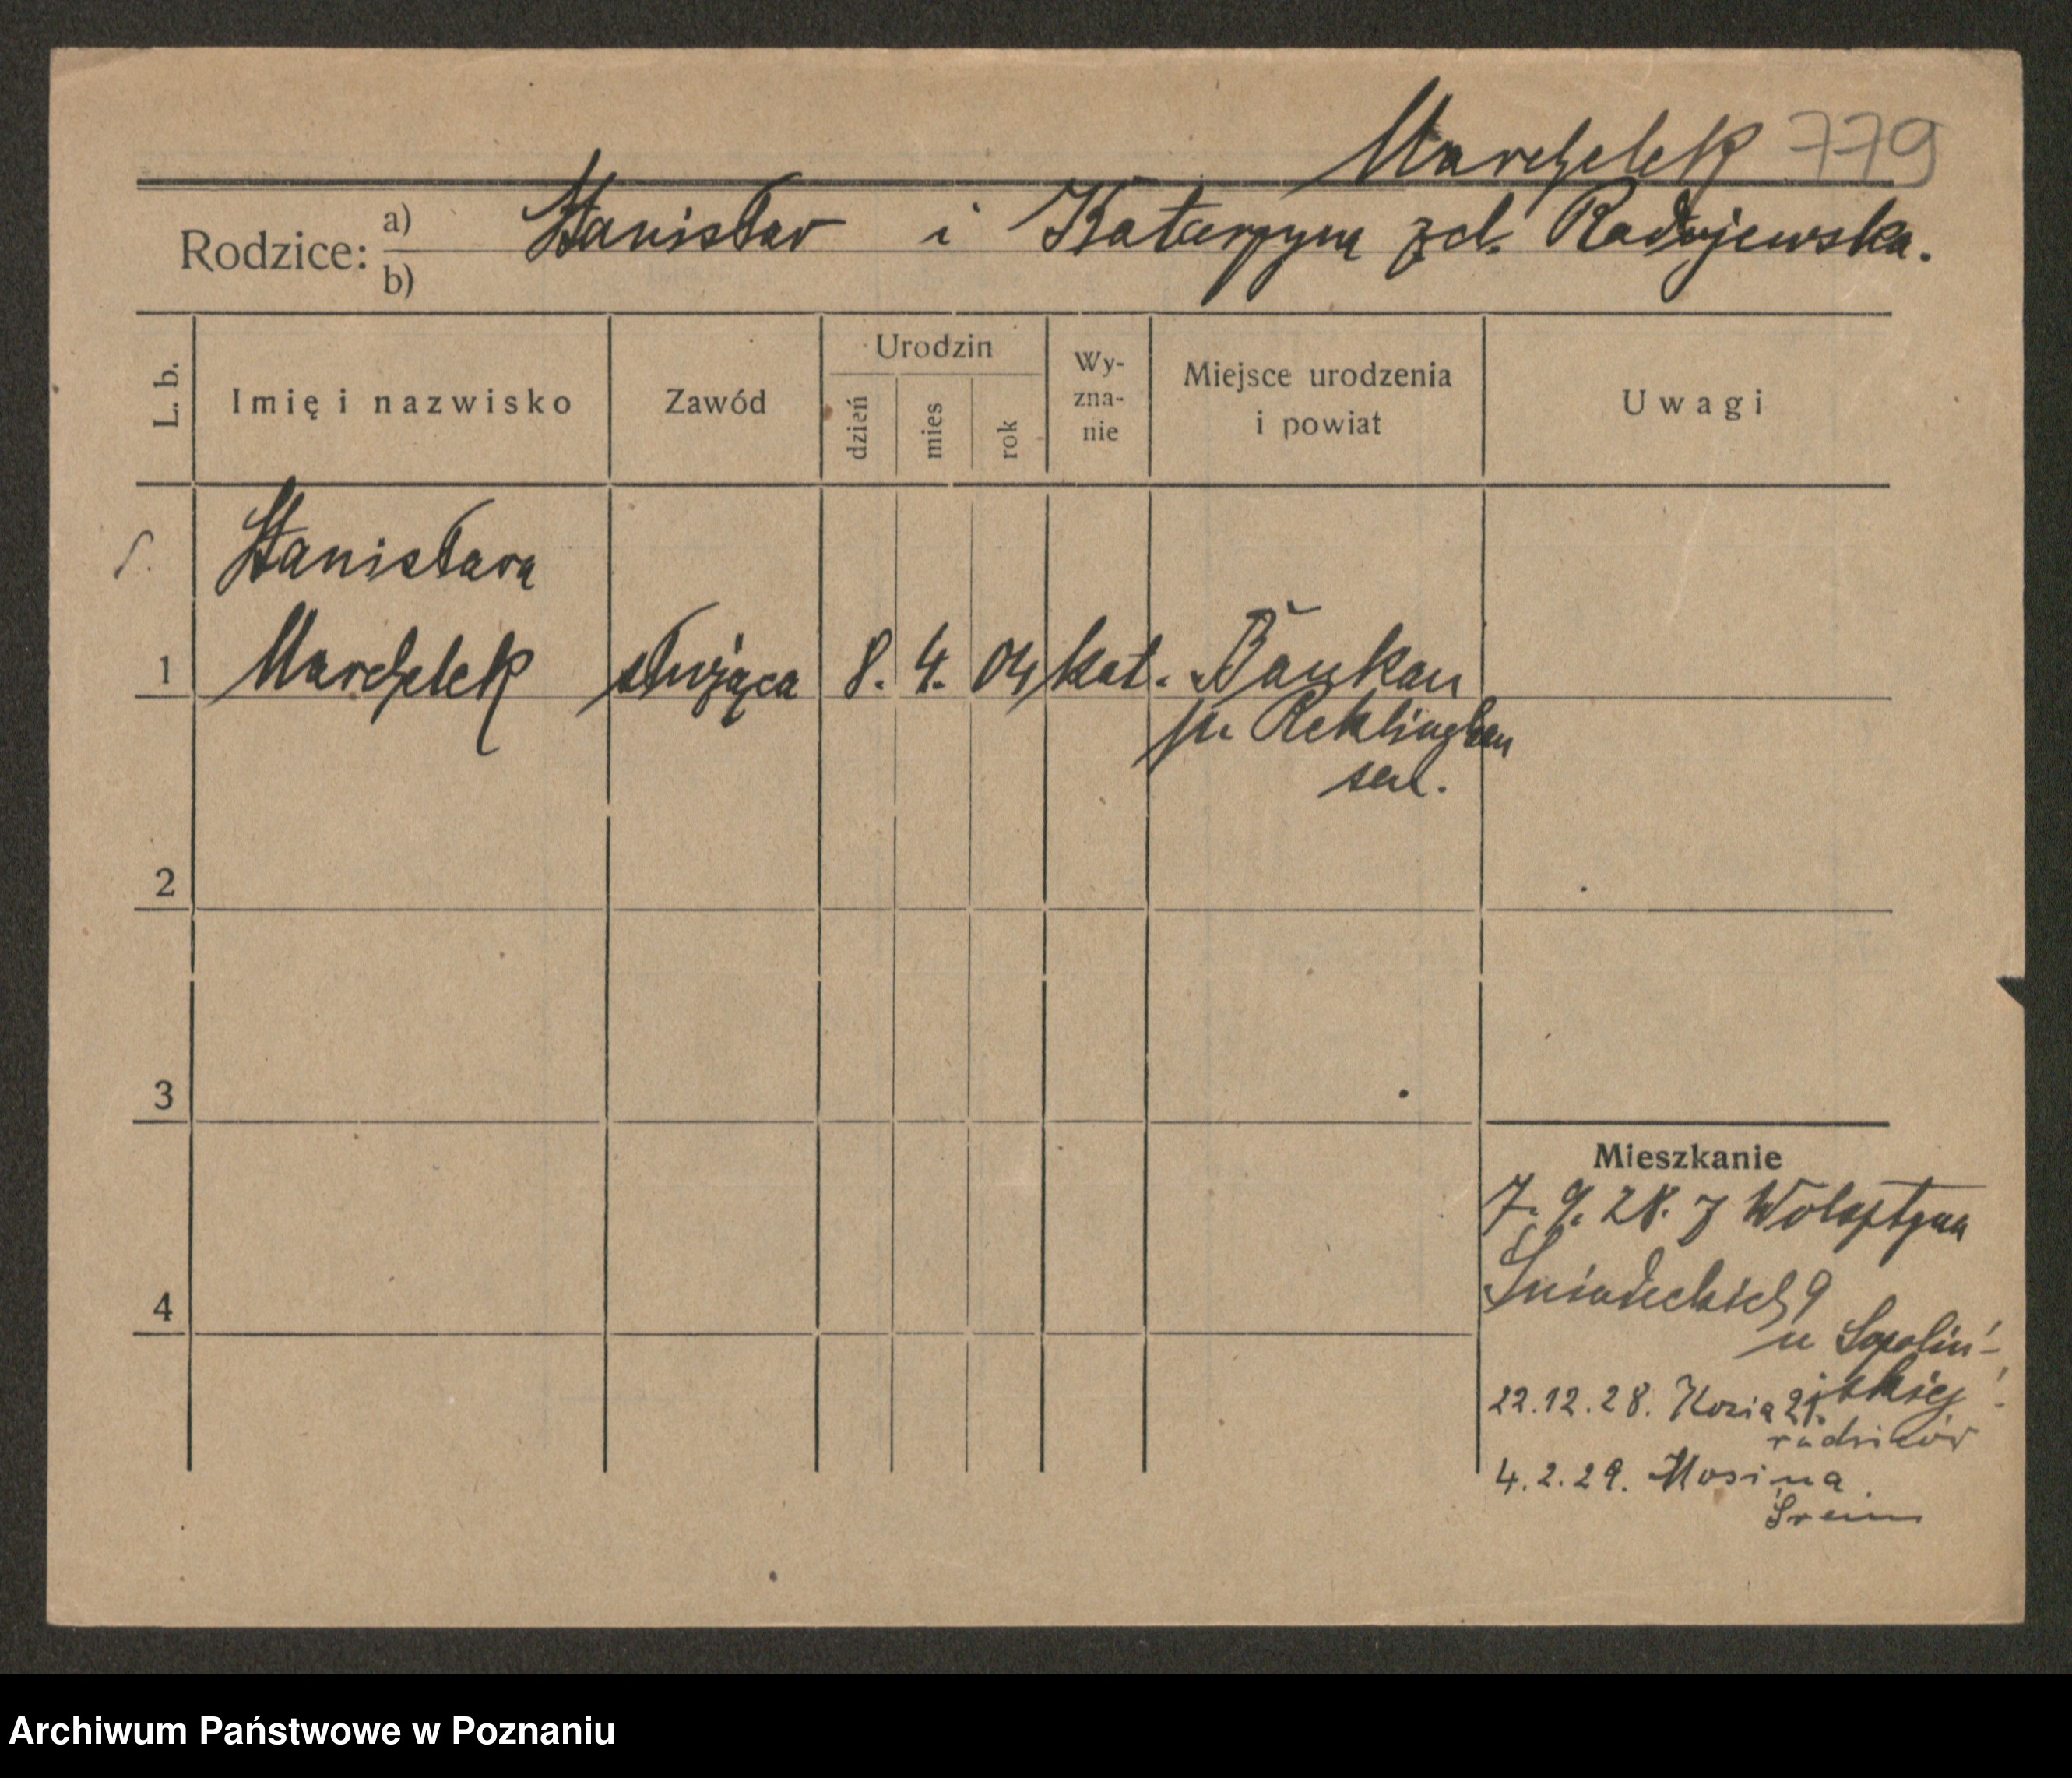 Marchelek 779
Rodzice: a) Stanisław i Katarzyna zd. Radojewska.
b)
L. b. Imię i nazwisko Zawód Urodzin dzień mies rok Wy-zna-nie Miejsce urodzenia i powiat Uwagi
Stanisława
1 Marchelek służąca 8. 4. 04 kat. Baukau
p. Reklinghau
sen.
2
3
4
Mieszkanie
7. 9. 28. z Wolsztyna
Śniadeckich 9
u
skiej
22.12.28. Kozia 21.
rodziców
4.2.29. Mosina
Śrem
Archiwum Państwowe w Poznaniu